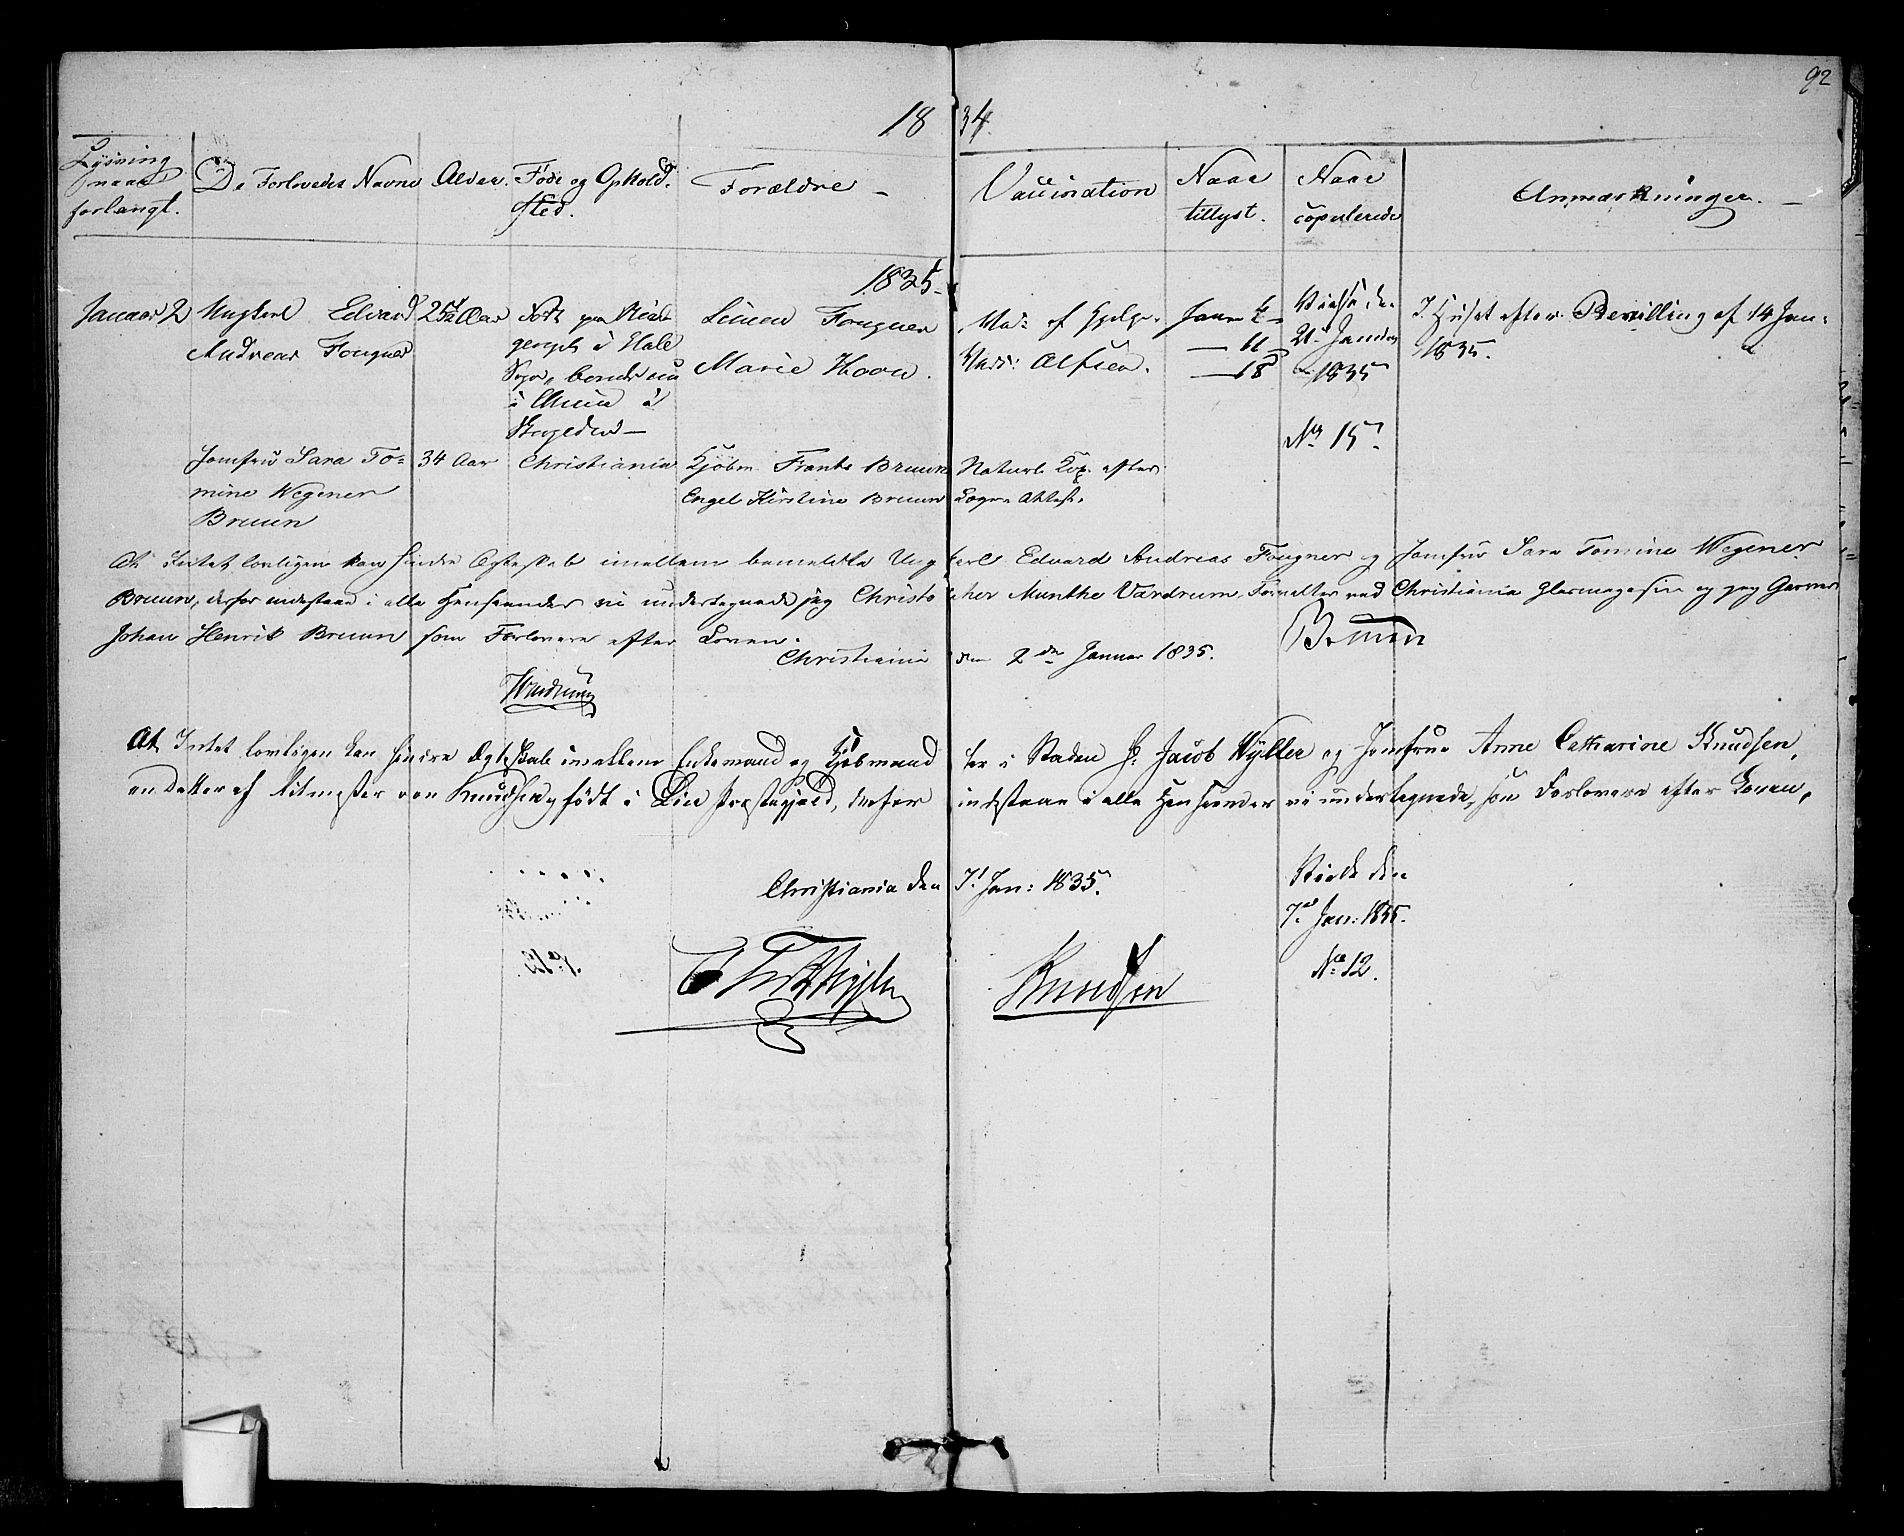 92
1834.
Lysning naar forlangt.
De Forlovedes Navne
Alder.
Føde og Ophold sted.
Forældre
Vaccination
Naar tillyst.
Naar copulerede
Anmærkninger.
1835.
Januar 2
Ungkarl Edvard
Andreas Fougner
25 Aar
Født paa
i
Sogn, boende nu
i
Simen Fougner
Marie Hoon.
Vac: af
Alfsen.
Janr 4
11
18
Viede den
21 Januar
1835
No 15.
I Huset efter Bevilling af 14 Jan:
1835.
Jomfru Sara To=
mine Wegener
Bruun
34 Aar
Christiania
Kjøbm. Frants Bruun
Engel Kirstine Bruun
Naturl. Kop. efter
Sogne Attest.
At Intet lovligen kan hindre Ægteskab imellem bemeldte Ungkarl Edvard Andreas Fougner og Jomfru Sara Tomine Wegener
Bruun, derfor indestaae i alle Henseender vi undertegnede jeg Christopher Munthe Vardrum, Forvalter ved Christiania Glasmagasin og jeg Garver
Johan Henrik Bruun som Forlovere efter Loven.
Christiania den 2den Januar 1835.
Bruun
At Intet lovligen kan hindre Ægteskab imellem Enkemand og Kjøbmand her i Staden Hr. Jacob Wyller og Jomfrue Anne Catharine Knudsen,
en Datter af Ritmester von Knudsen født i Lier Præstegjeld, derfor indestaae i alle Henseender vi undertegnede, som Forlovere efter Loven,
Christiania den 7d Jan: 1835.
Viede den
7d Jan: 1835.
No 12.
Knudsen